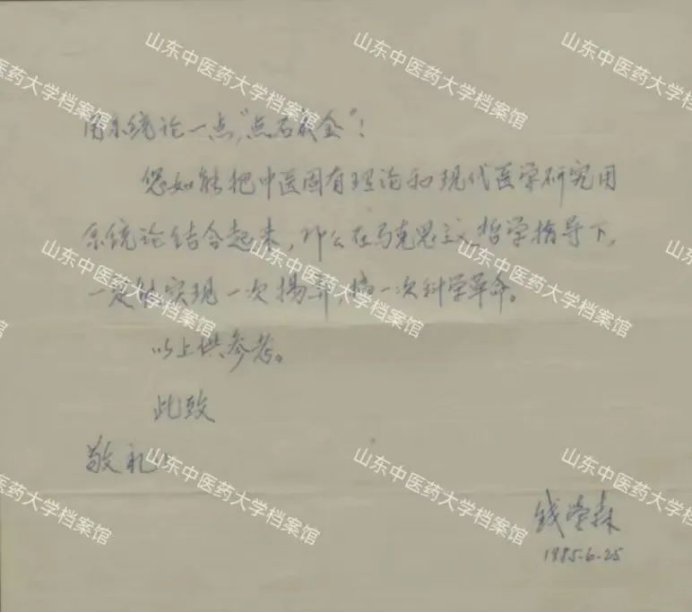 用系统论一点,“点石成金”!
您如能把中医固有理论和现代医学研究用
系统论结合起来,那么在马克思主义哲学指导下,
一定能实现一次扬弃,搞一次科学革命。
以上供参考。
此致
敬礼!
钱学森
1985.6.25
山东中医药大学档案馆
山东中医药大学档案馆
山东中医药大学档案馆
山东中医药大学档案馆
山东中医药大学档案馆
山东中医药大学档案馆
山东中医药大学档案馆
山东中医药大学档案馆